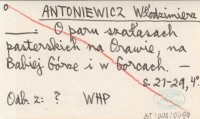 o ANTONIEWICZ Włodzimierz
——: O paru szałasach
pasterskich na Orawie, na
Babiej Górze i w Gorcach, –
s. 21-29, 4°.
Odb z: ? WHP